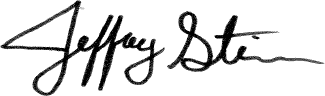 Jeffrey Stein